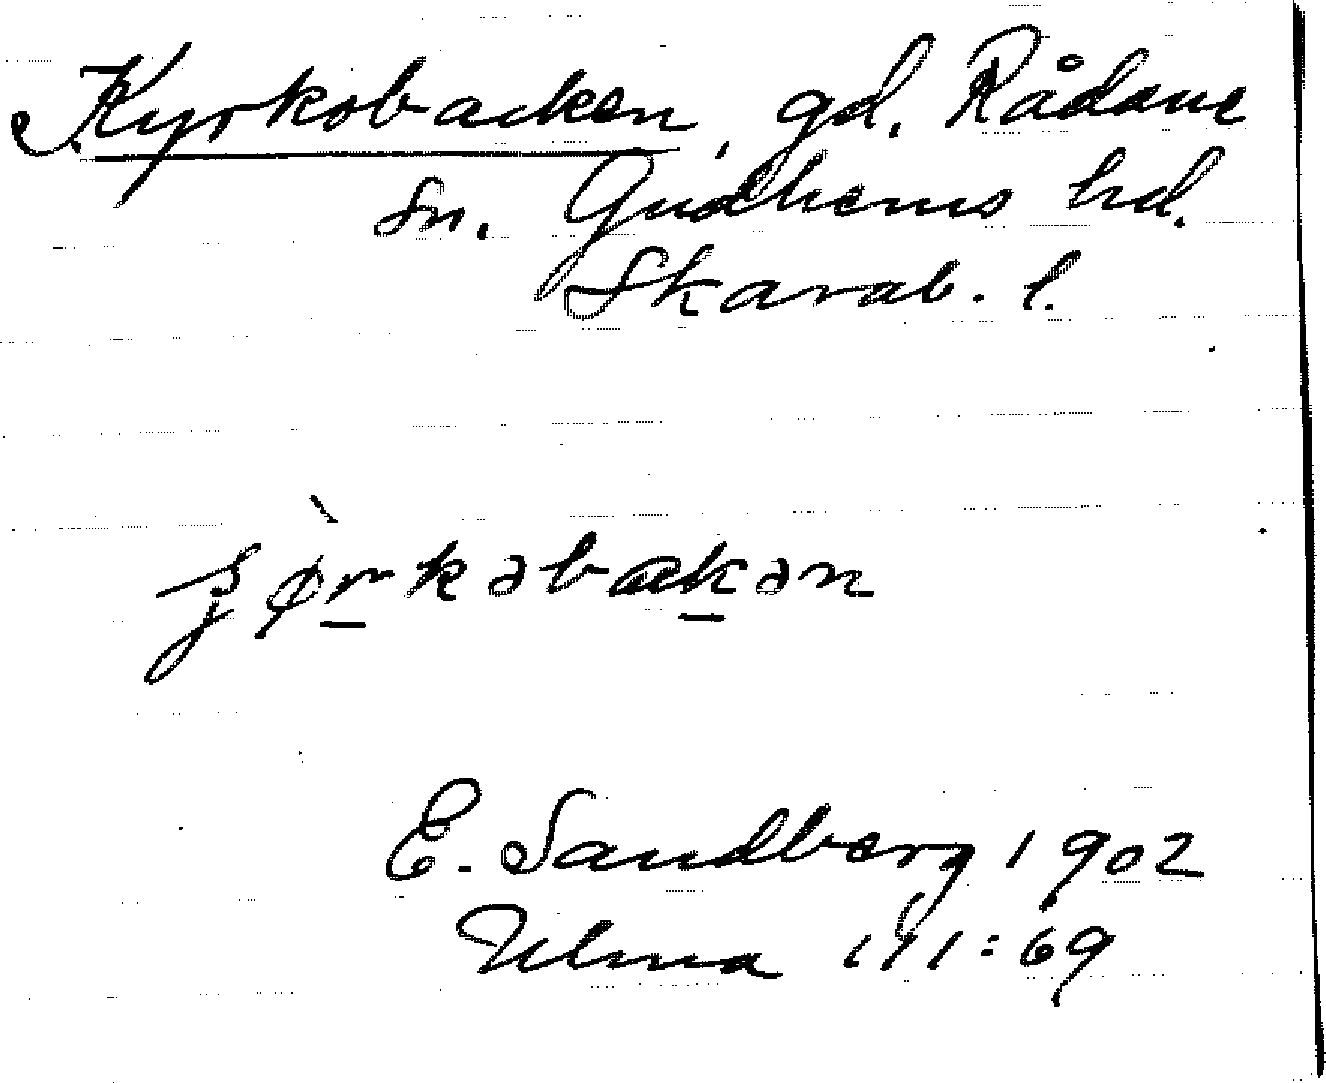 Kyrkobacken, gd. Rådene
sn. Gudhems hd.
Skarab. l.
kəbakən
E. Sandberg 1902
Ulma 111:69